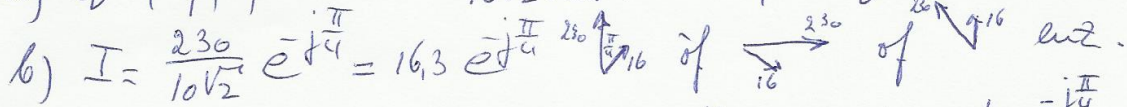 b) I = 230/10√2 e^-jπ/4 = 16,3 e^-jπ/4 230 π/4 16 òf 230 16 of 230 16 enz.
-jπ/4